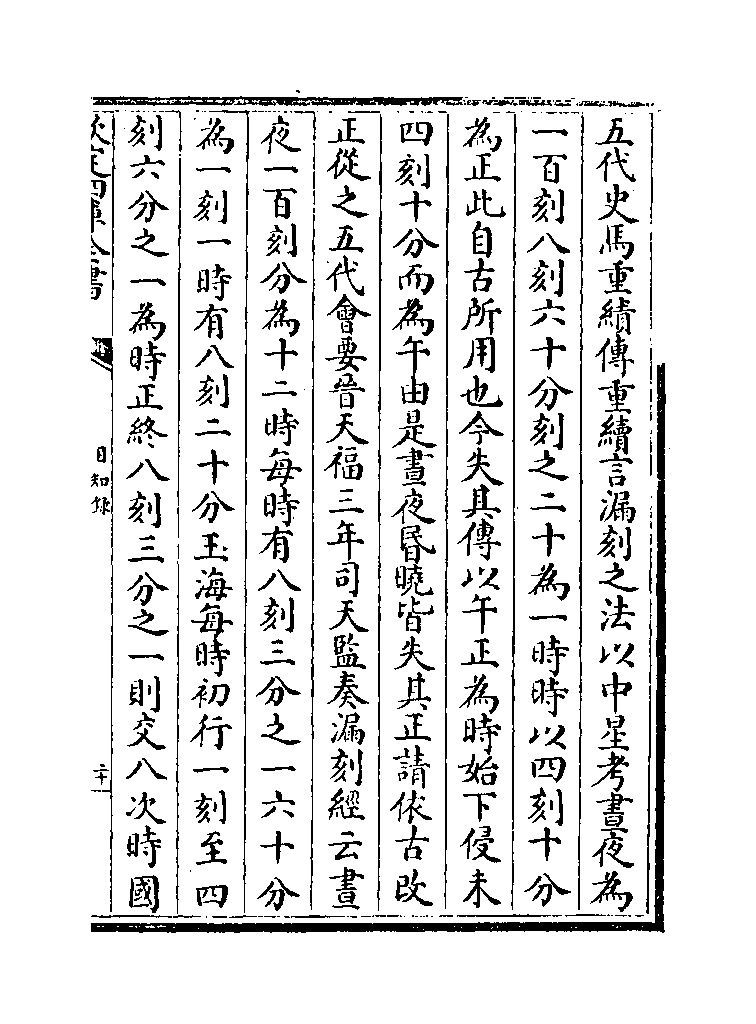 五代史馬重績傳重績言漏刻之法以中星考晝夜為
一百刻八刻六十分刻之二十為一時時以四刻十分
為正此自古所用也今失其傳以午正為時始下侵未
四刻十分而為午由是晝夜昏曉皆失其正請依古改
正從之五代會要晉天福三年司天監奏漏刻經云晝
夜一百刻分為十二時每時有八刻三分之一六十分
為一刻一時有八刻二十分玉海每時初行一刻至四
刻六分之一為時正終八刻三分之一則交入次時國
欽定四庫全書
日知錄
二十